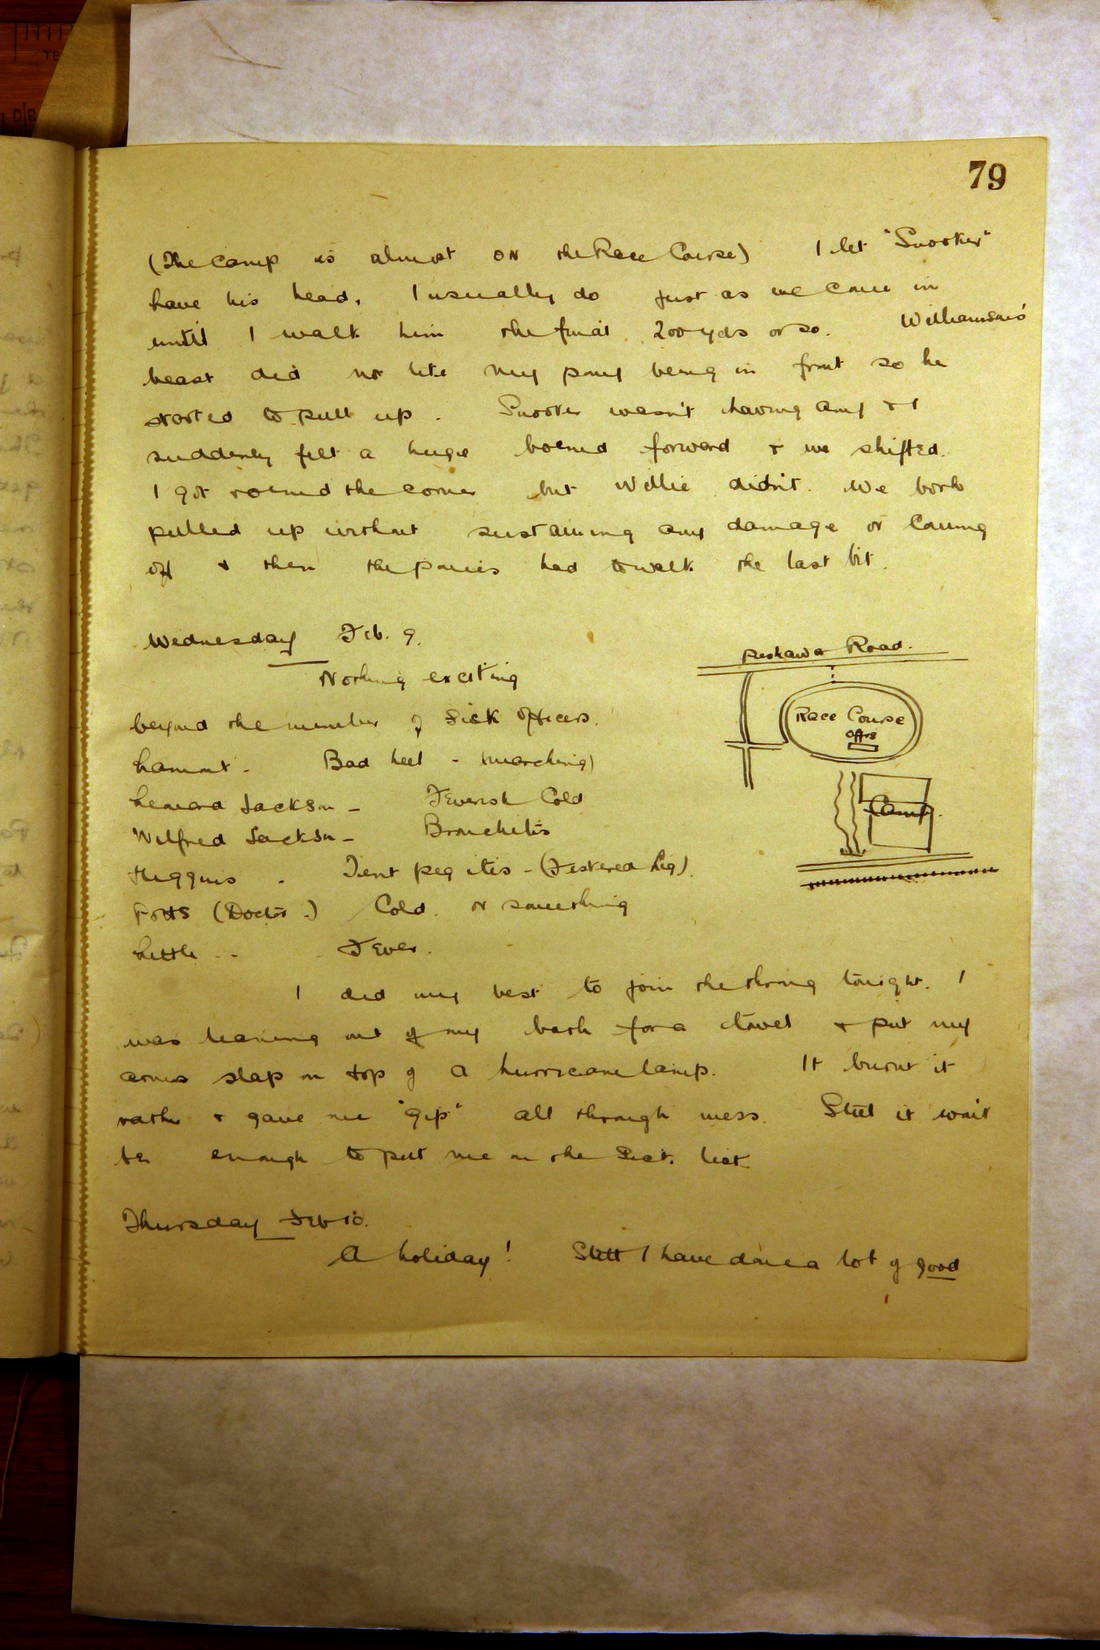 79
(The camp is almost on the Race Course) I let "Snooker"
have his head, I usually do just as we come in
until I walk him the final 200 yds or so. Williamson's
beast did not like my pony being in front so he
started to pull up. Snooker wasn't having any & I
suddenly felt a huge bound forward & we shifted.
I got round the corner but Willie didn't. We both
pulled up without sustaining any damage or coming
off & then the ponies had to walk the last bit.
Wednesday Feb. 9.
Nothing exciting
beyond the number of Sick Officers.
Bad heel - (marching)
Leonard Jackson - Feverish Cold
Wilfred Jackson - Bronchitis
Higgins - Tent peg itis - (Festered Leg).
Potts (Doctor.) Cold. or something
Little - Fever.
Peshawar Road.
Race Course
Offrs
Camp.
I did my best to join the throng tonight. I
was leaning out of my bath for a towel & put my
arms slap on top of a hurricane lamp. It burnt it
rather & gave me "gip" all through mess. Still it won't
be enough to put me on the Sick list.
Thursday Feb 10.
A holiday! Still I have done a lot of good